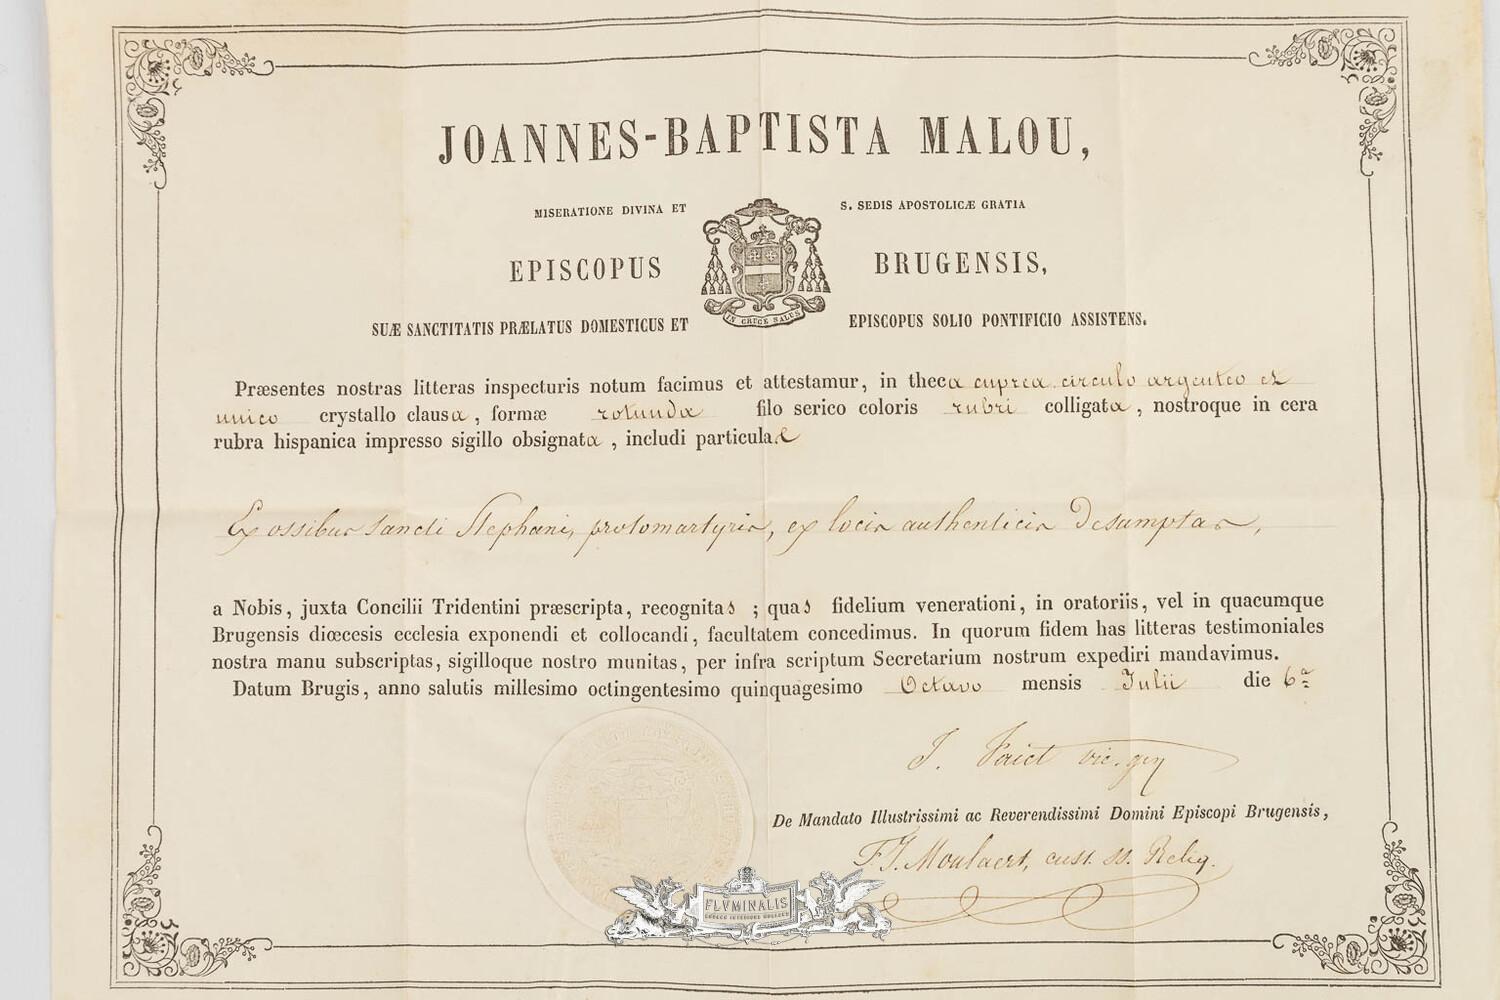 JOANNES-BAPTISTA MALOU,
MISERATIONE DIVINA ET S. SEDIS APOSTOLICÆ GRATIA
EPISCOPUS BRUGENSIS,
IN CRUCE SALUS
SUÆ SANCTITATIS PRÆLATUS DOMESTICUS ET EPISCOPUS SOLIO PONTIFICIO ASSISTENS.
Præsentes nostras litteras inspecturis notum facimus et attestamur, in theca cuprea circulo argenteo et
unico crystallo clausa, formæ rotunda filo serico coloris rubri colligata, nostroque in cera
rubra hispanica impresso sigillo obsignata, includi particulas
Ex ossibus sancti Stephani, protomartyris, ex locis authenticis desumptas,
a Nobis, juxta Concilii Tridentini præscripta, recognitas ; quas fidelium venerationi, in oratoriis, vel in quacumque
Brugensis diœcesis ecclesia exponendi et collocandi, facultatem concedimus. In quorum fidem has litteras testimoniales
nostra manu subscriptas, sigilloque nostro munitas, per infra scriptum Secretarium nostrum expediri mandavimus.
Datum Brugis, anno salutis millesimo octingentesimo quinquagesimo Octavo mensis Julii die 6a
J. Faict vic. gen
De Mandato Illustrissimi ac Reverendissimi Domini Episcopi Brugensis,
F. J. Moulaert, cust. ss. Reliq.
FLVMINALIS